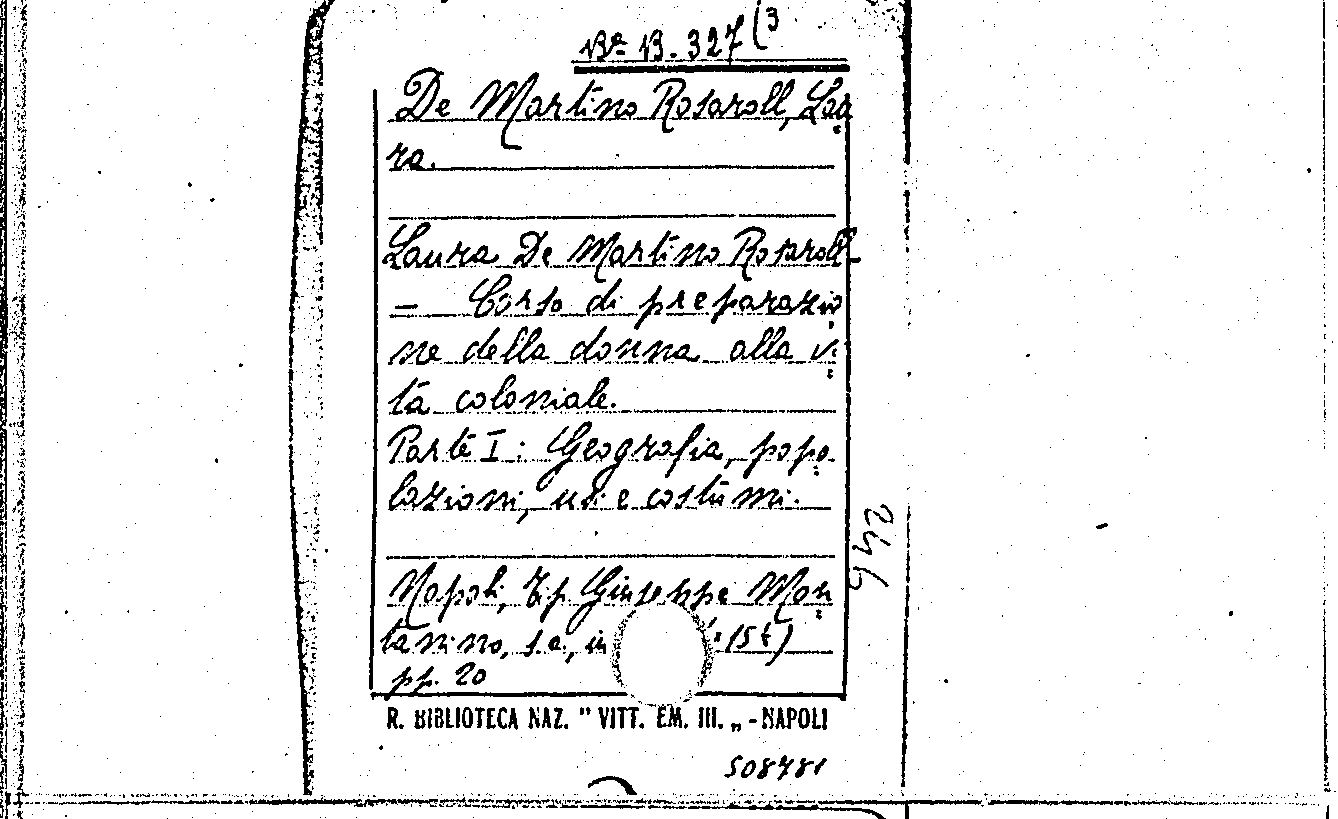 Ba B. 327 (3
De Martino Rosaroll, Lau
ra.
Laura De Martino Rosaroll
— Corso di preparazio
ne della donna alla vi
ta coloniale.
Parte I: Geografia, popo
lazioni, usi e costumi.
Napoli, Tip Giuseppe Mon
tanino, s.a., in (15t)
pp. 20
246
R. BIBLIOTECA NAZ. " VITT. EM. III. „ - NAPOLI
508781